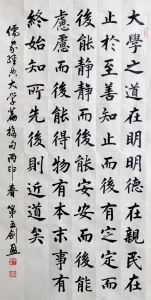 大學之道在明明德在親民在
止於至善知止而後有定定而
後能靜靜而後能安安而後能
慮慮而後能得物有本末事有
終始知所先後則近道矣
儒家經典大學篇摘句丙申春第五劍